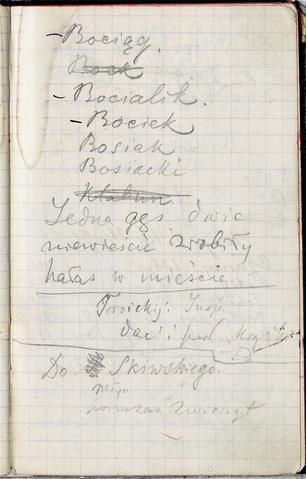 - Bociąg.
Bock
- Bocialik.
- Bociek
Bosiak
Bosiacki
Jedna gęś dwie
niewieście zrobiły
hałas w mieście
Troickij: Insp.
dać:
Do Skiwskiego.
zwierząt